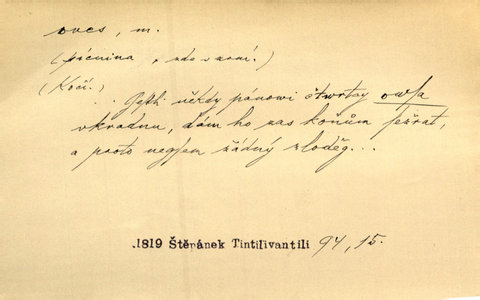 oves, m.
(pícnina, zde s zrní.)
(Kočí.)
.. Gestli někdy pánowi čtwrtey owsa
vkradnu, dám ho zas koňům sežrat,
a proto negsem žádný zloděg...
.1819 Štěpánek Tintilivantili 94, 15.